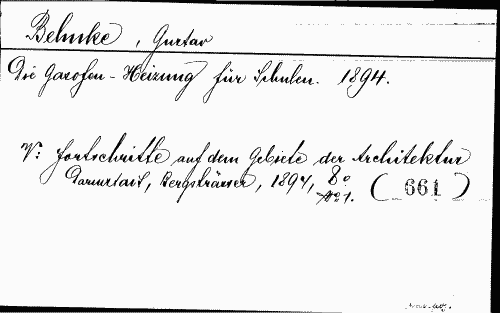 Behnke, Gustav
Die Gasofen-Heizung für Schulen. 1894.
V: Fortschritte auf dem Gebiete der Architektur
Darmstadt, Bergsträsser, 1894, 8o (661)
No 1.